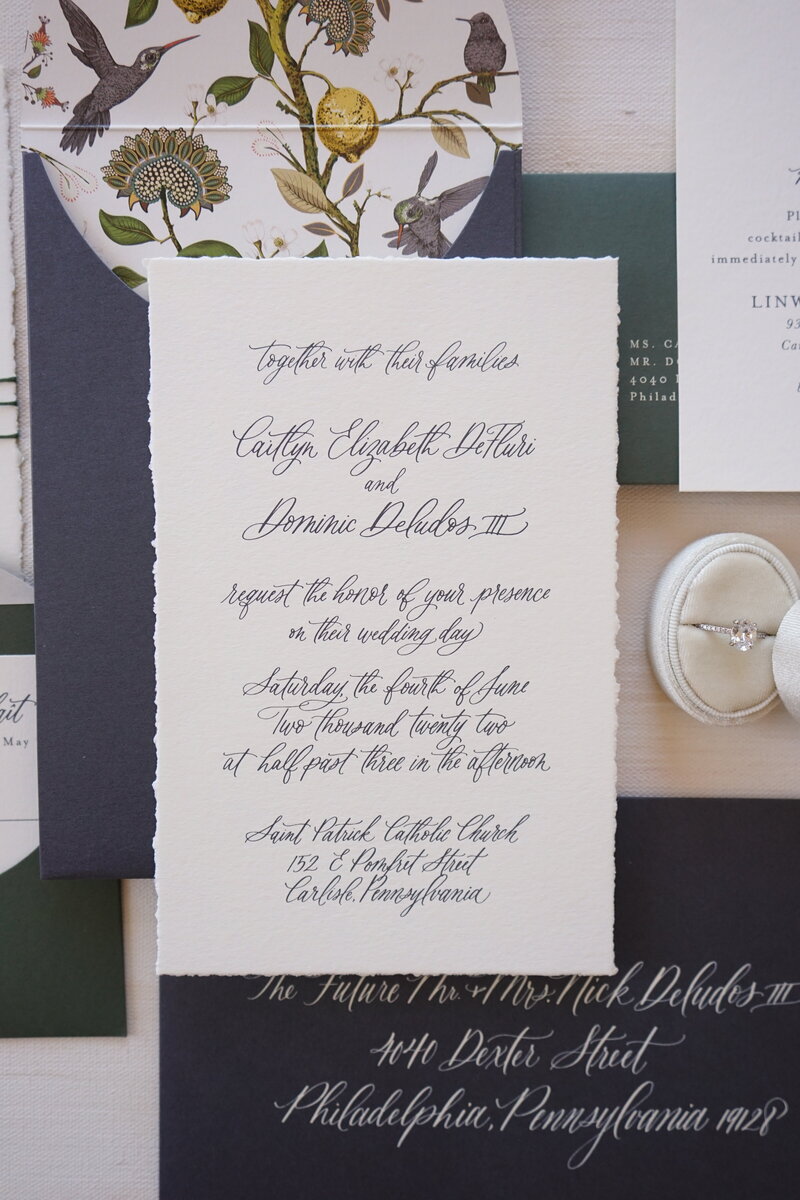 together with their families
Caitlyn Elizabeth DeFluri
and
Dominic Deludos III
request the honor of your presence
on their wedding day
Saturday, the fourth of June
Two thousand twenty two
at half past three in the afternoon
Saint Patrick Catholic Church
152 E Pomfret Street
Carlisle, Pennsylvania
The Future Mr. + Mrs. Nick Deludos III
4040 Dexter Street
Philadelphia, Pennsylvania 19128
MS. CA
MR. DO
4040
Philad
cocktail
immediately
LINW
93
Ca
May